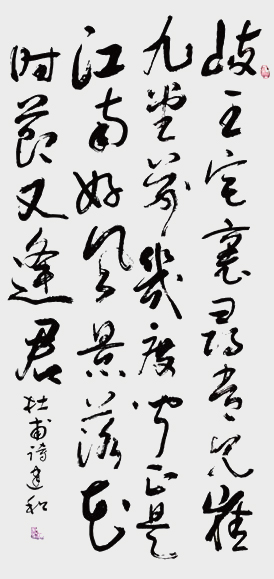 岐王宅裏尋常見崔
九堂前幾度聞正是
江南好風景落花
時節又逢君
杜甫詩建和